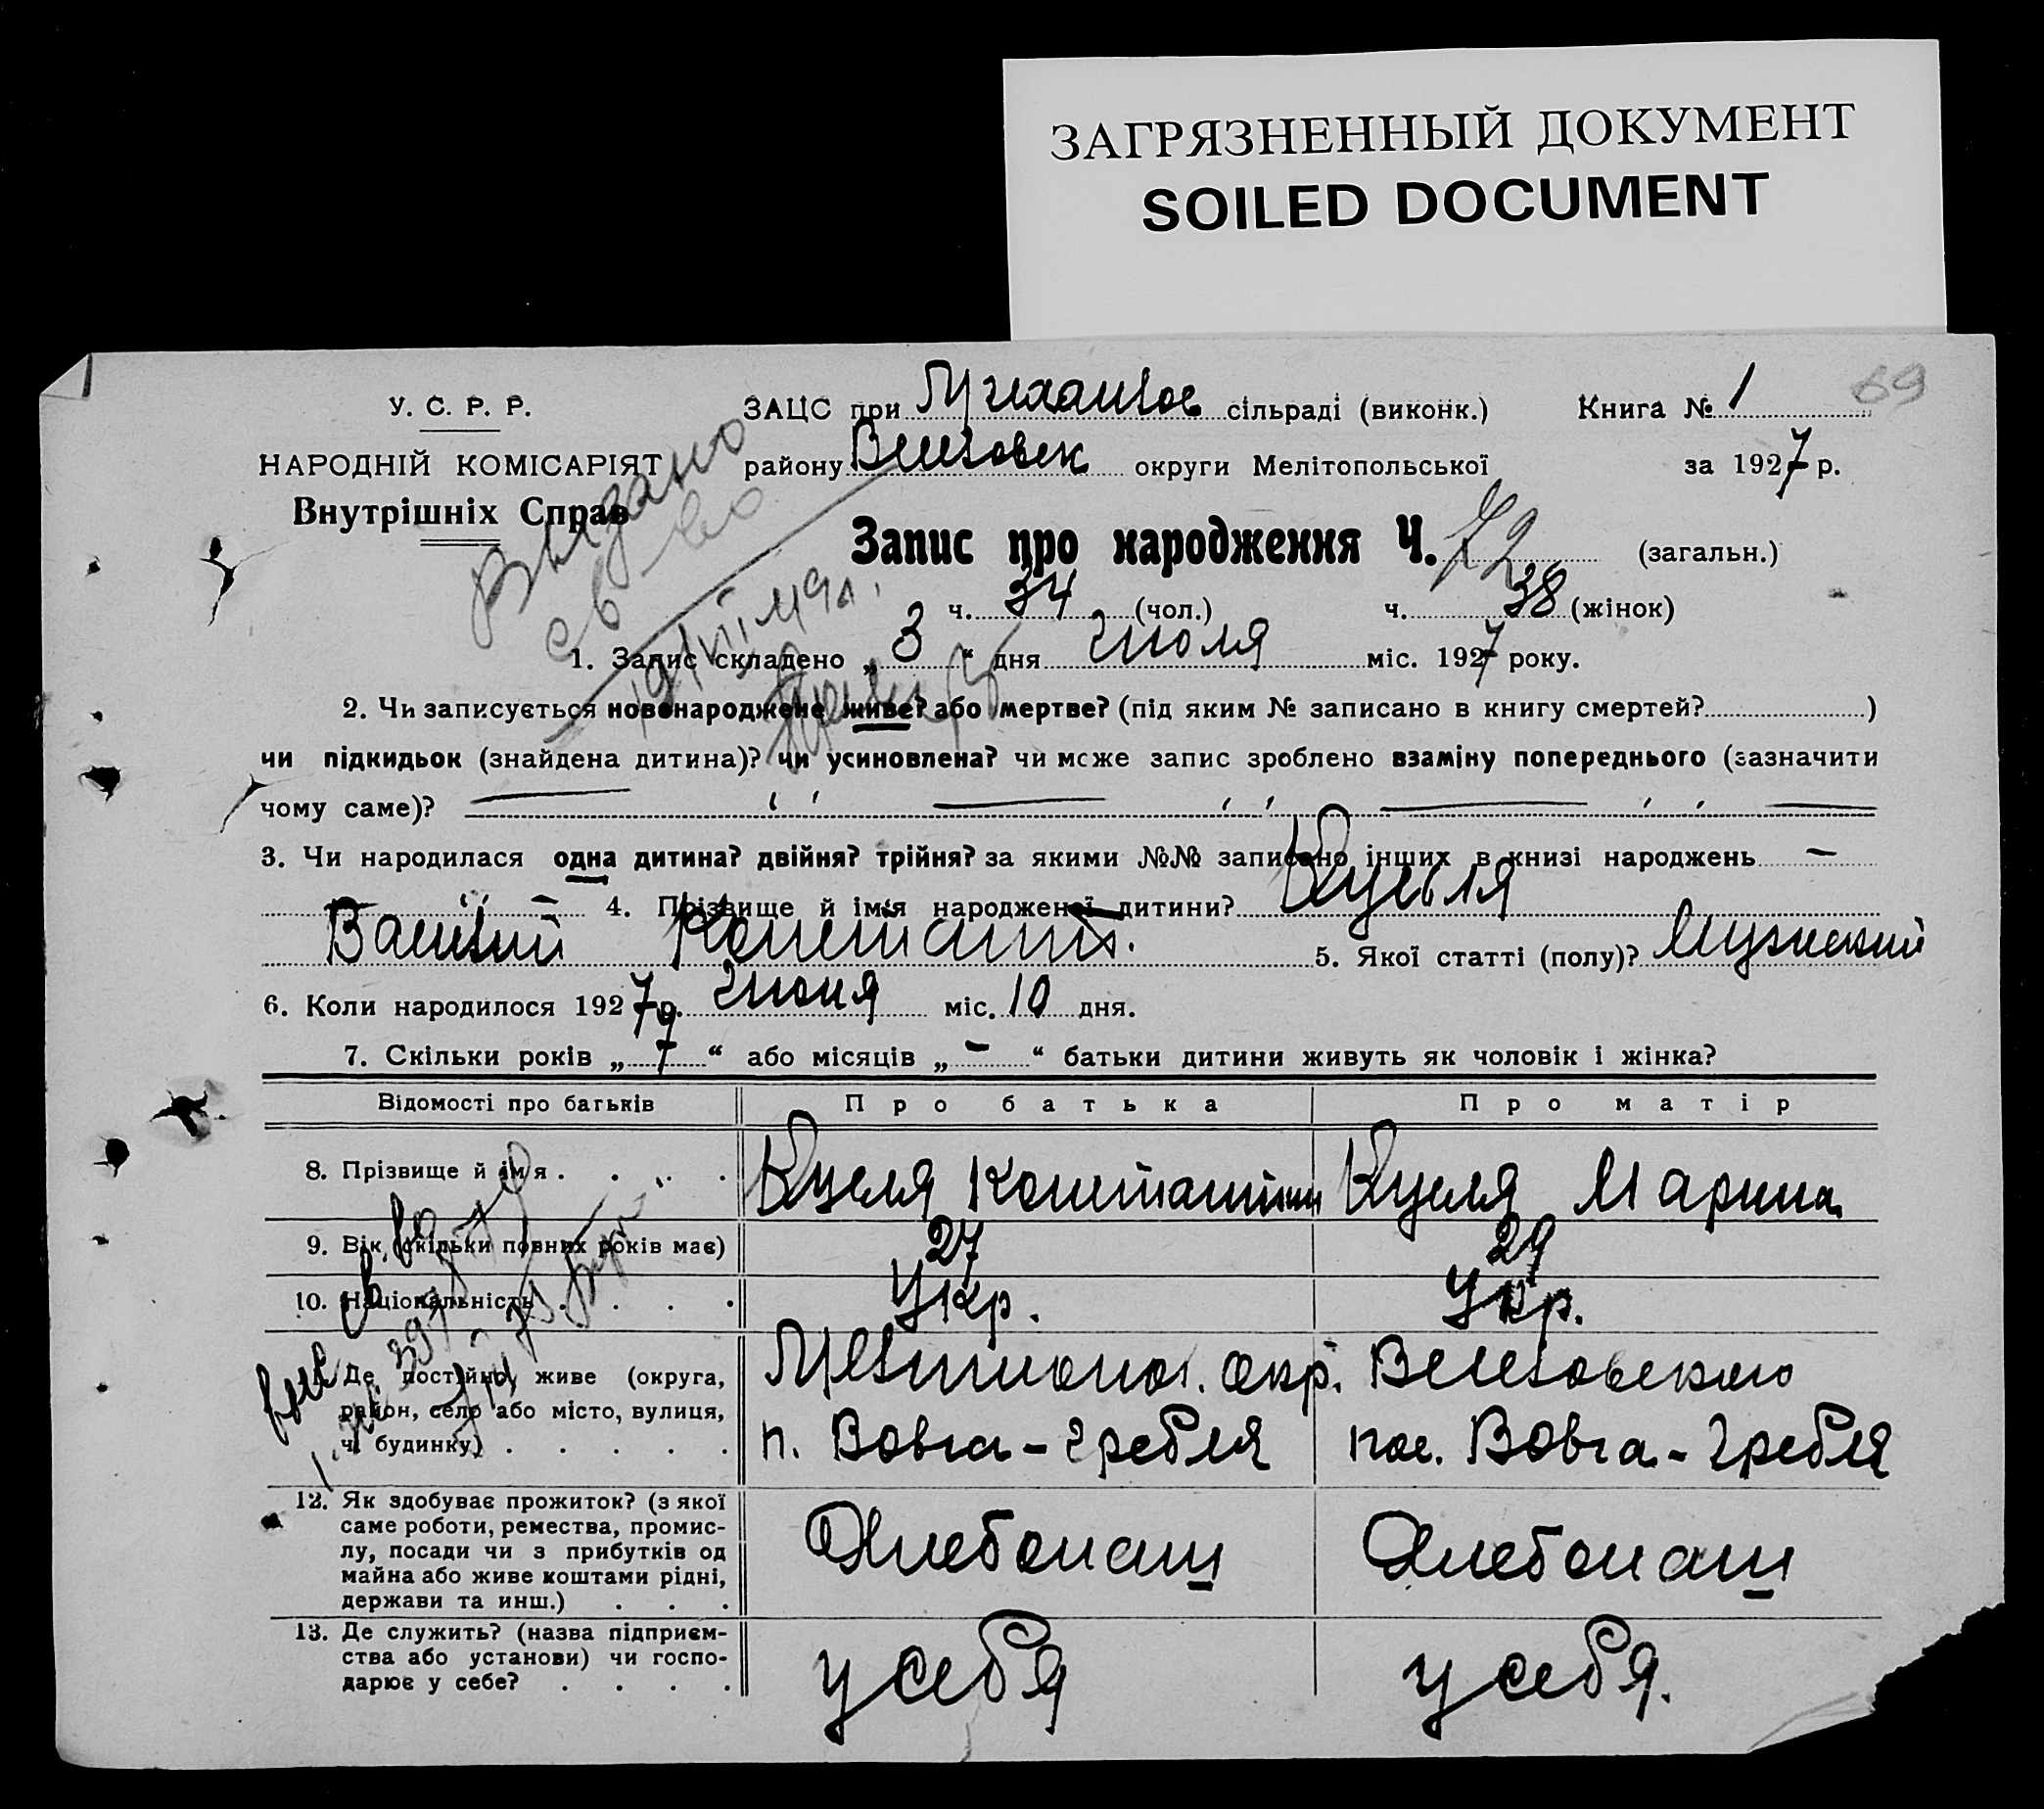 ЗАГРЯЗНЕННЫЙ ДОКУМЕНТ
SOILED DOCUMENT
69
У. С. Р. Р.
НАРОДНІЙ КОМІСАРІЯТ
Внутрішніх Справ
ЗАЦС при сільраді (виконк.) Книга № 1
району округи Мелітопольської за 1927 р.
Выдано
св во
Запис про народження Ч. 72 (загальн.)
ч. 34 (чол.) ч. 38 (жінок)
1. Запис складено „ 3 “ дня Июля міс. 1927 року.
2. Чи записується новонароджене живе? або мертве? (під яким № записано в книгу смертей? )
чи підкидьок (знайдена дитина)? чи усиновлена? чи може запис зроблено взаміну попереднього (зазначити
чому саме)? — " — " — " —
3. Чи народилася одна дитина? двійня? трійня? за якими №№ записано інших в книзі народжень —
— " — 4. Прізвище й ім'я народженої дитини?
Василий Констант. 5. Якої статті (полу)? Мужеский
6. Коли народилося 1927 р. Июня міс. 10 дня.
7. Скільки років „ 7 “ або місяців „ — “ батьки дитини живуть як чоловік і жінка?
Відомості про батьків Про батька Про матір
8. Прізвище й ім'я . . . . Куцеля Константин Куцеля Марина
9. Вік (скільки повних років має) 27 29
10. Національність . . . . Укр. Укр.
11. Де постійно живе (округа,
район, село або місто, вулиця,
ч. будинку) . . . . .
окр.
п. Вовча-Гребля пос. Вовча-Гребля
12. Як здобуває прожиток? (з якої
саме роботи, ремества, промис-
лу, посади чи з прибутків од
майна або живе коштами рідні,
держави та инш.) . . .
Хлебопаш Хлебопаш
13. Де служить? (назва підприєм-
ства або установи) чи госпо-
дарює у себе? . . . .
у себя у себя.